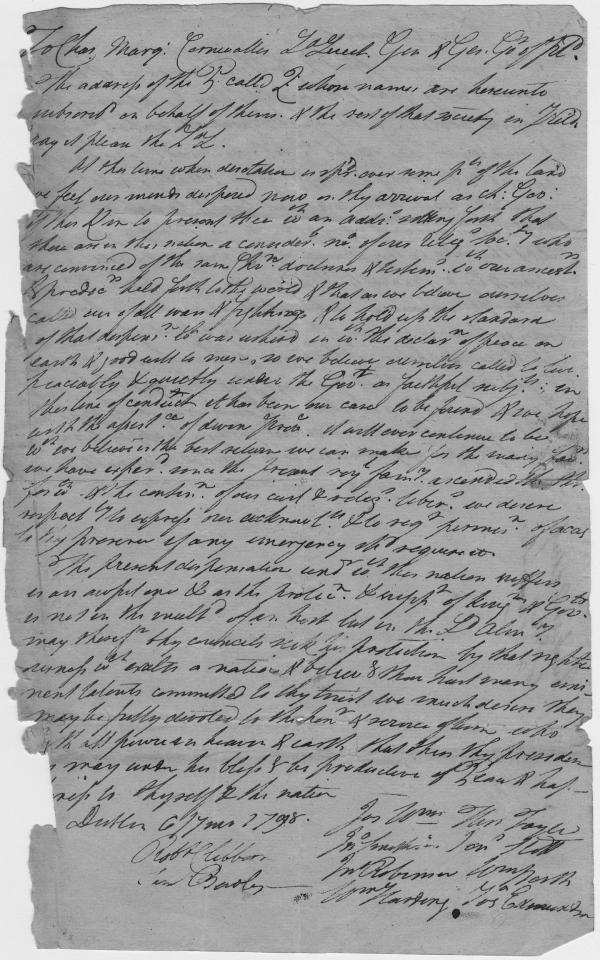 To Chas. Marq: Cornwallis Ld Lieut. Gen & Gen. Gr of Ird.
The address of the P. called Q. whose names are hereunto
subscrd. on behalf of thems. & the rest of that society in Ireld.
may it please the Ld L.
At this time when desolation is spd. over some ps. of the land
we feel our minds disposed now on thy arrival as ch: Gov:
of this to present thee wth an addrs. setting forth that
there are in this nation a considerle. no. of our religs. Socty. who
are convinced of the same Chrn. doctrines & testims. wch our ancestrs.
& predecrs. held forth to the world & that as we believe ourselves
called out of all wars & fightings & to hold up the standard
of that dispensn. wch was usherd in wth the declarn. of peace on
earth & good will to men, so we believe ourselves called to live
peaceably & quietly under the Govt. as faithful subjts: in
this line of conduct it has been our care to be found & we hope
with the assistce. of divine Provce. it will ever continue to be
wch we believe is the best return we can make for the many favrs.
we have experd. since the present royl. famy. ascended the thr.
for wch & the continn. of our civil & religs. libers. we desire
respectly. to express our acknowlts. & to reqt. permisn. of access
to thy presence if any emergency shd require it
The present dispensation undr wch this nation suffers
is an awful one & as the protecn. & suppt. of kingms & Govts
is not in the multd. of an host but in the Ld Almy.
may therefe. thy councils seek his protection by that righte
ousness wch exalts a nation & believg that hast many emi-
nent talents committed to thy trust we much desire they
may be fully devoted to the honr. & service of him who
hath all power in heaven & earth that then thy presiden
may under his blessg be productive of Peace & hap-
piness to thyself & this nation
Dublin 6 7 mo 1798.
Jos Wms Thos Fayle
Robt Clibborn Jno. Jona. Hott
Bewley Jno Robinson Wm
Wm Harding Jos Edmundson